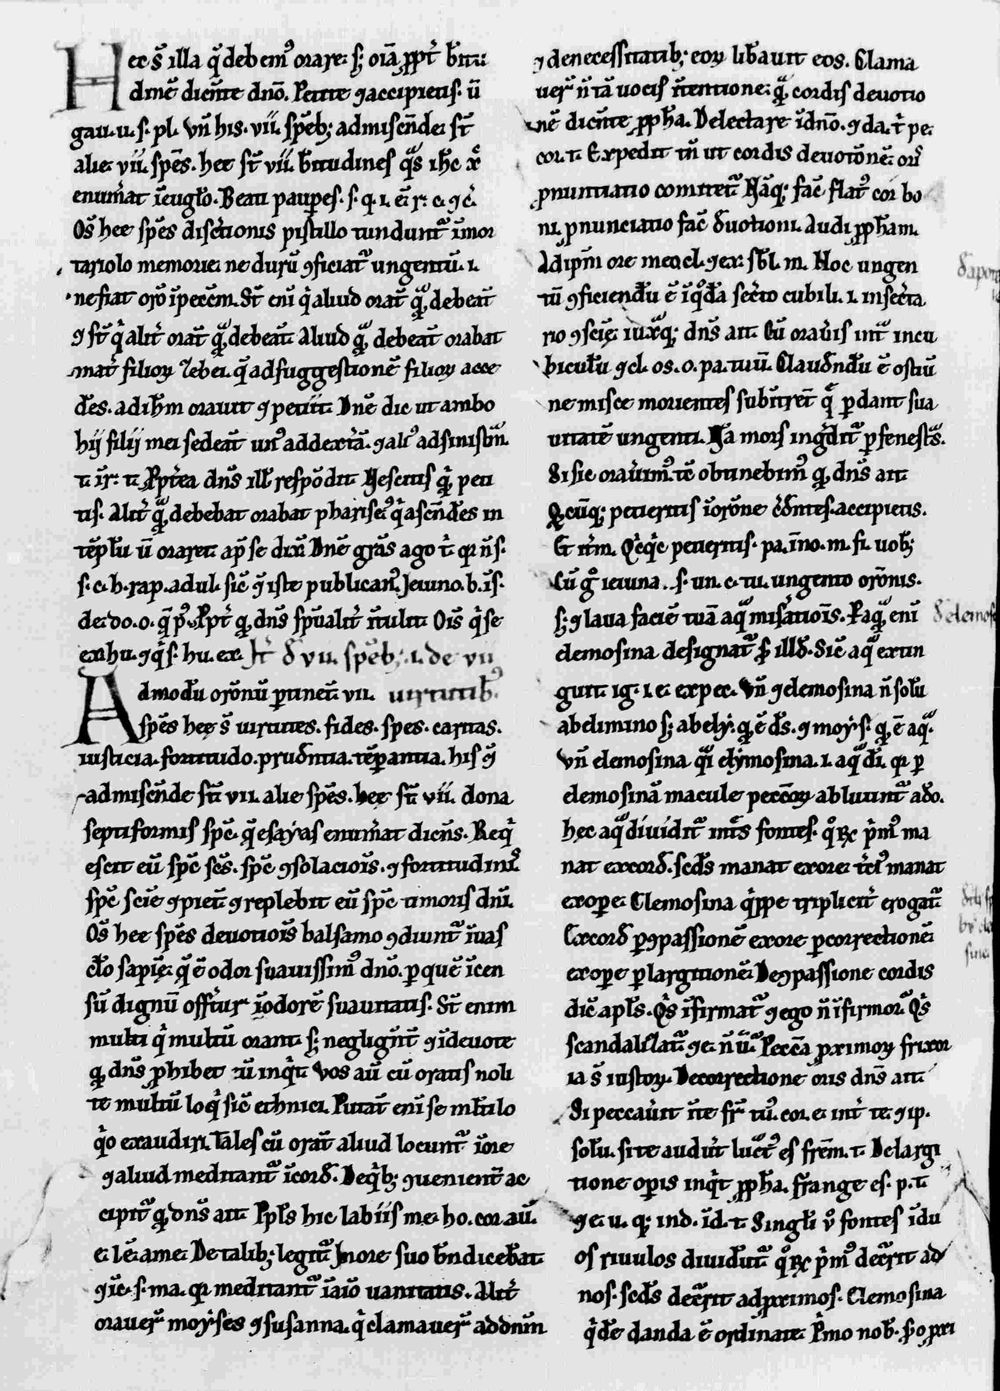 Hec s̄ illa q̄ debem᷒ orare. s; oīa ꝓpt̄ b̄itu
dinē dicēte dn̄o. Petite ⁊ accipietis. ū
gau. u. s. pl. Vn̄ his. vii. spēb; admiscēde st̄
alie. vii. spēs. hee st̄ vii. b̄titudines q̄s ih̄c xp̄c
enum̄at ī euḡlo. Beati paupes. s. q. i. ē. r. c. ⁊ c̄.
Os̄ hee spēs discret̄ionis pistillo tundunt᷑ ī mor
tariolo memorie. ne durū ⁊ficiat᷑ ungentū. i.
ne fiat or̄o īpecēm. St̄ eni q̇ aliud orāt qͣ debeāt
⁊ st̄ q̇ alit̄ orāt qͣ debeāt. Aliud qͣ debeāt orabat
mat̄ filioꝝ zebei. q̄ ad suggestionē filioꝝ acce
dēs. ad ih̄m orauit ⁊ petiit. Dn̄e dic ut ambo
hij filij mei sedeāt un᷒ ad dexterā. ⁊ alt᷒ ad sinistrā.
t. ī r. t. Ꝓpt̄ea dn̄s ill̄ respōdit Nescitis q̇ peti
tis. Alit̄ qͣ debebat orabat pharise᷒ q̇ ascēdēs in
tēplū ū oraret. ap̄ se dix̄ Dn̄e grās ago t̄ qꝛ n̄ s.
s. c. h. rap. adul. sic̄ ⁊ iste publican᷒. Jeiuno. b. ī s.
de. do. o. q̄ p᷒. Ꝓpt̄ q, dn̄s spūalit̄ ītulit Ois̄ q̇ se
ex. hu. ⁊ q̇ s. hu. ex. It̄ δ vii. spēb; .i. de vii
Ad modū or̄onū ptinēt vii. uirtutib᷒
spēs hee s̄ uirtutes. fides. spes. caritas.
iusticia. fortitudo. prudn̄tia. tēpantia. his ⁊
admiscēde st̄ vii. alie spēs. hee st̄ vii. dona
septiformis spc̄. q̄ esayas enum̄at dicn̄s. Req̇
escit eū spc̄ sc̄s. spc̄ ⁊solacioīs. ⁊ fortitudinis
spc̄ scīe ⁊ pietī ⁊ replebit eū spc̄ timoris dn̄i.
Os̄ hee spēs deuotiois̄ balsamo ⁊diunt᷑ ī uas
cl̄o sapię. q̄ ē odor suauissim᷒ dn̄o. p quē īcen
sū dignū offert᷑ ī odorē suauitatis. St̄ enim
multi q̇ multū orant s; neglign̄t ⁊ īdeuote
q, dn̄s ꝓhibet ū inq̇t. Vos aū cū oratis noli
te multū loq̇ sic̄ ethnici. Putāt eni se m̄ltilo
q̇o exaudiri. Tales cū orāt aliud locunt᷑ ī ore
⁊ aliud meditant᷑ ī cord̄. De q̇b; ⁊uenient̄ ac
cipit᷑ q, dn̄s ait Ppl̄s hic labiis me ho. cor aū.
e. lē a me. De talib; legit᷑ ore suo bn̄dicebāt
⁊ īc. s. ma. qꝛ meditant᷑ īaīo uanitatis. Alit̄
orauer̄ moyses ⁊ susanna. q̇ clamauer̄ ad dn̄m
⁊ de necessitatib; eoꝝ lib̄auit eos. Clama
uer̄ n̄ tā uocis ītentione. qͣ cordis deuotio
nē dicēte ꝓph̄a. Delectare ī dn̄o. ⁊ da. t̄ pe.
cor. t. Expedit tn̄ ut cordis deuotōnē. oris
pnuntiatio comitet᷑ Nāq; fac̄ flat᷒ cor bo
ni. pnunciatio fac̄ δuotioni. Audi ꝓph̄am.
Adipīn ore meo cl. ⁊ ex. sbl̄. m. Hoc ungen
tū ⁊ficiendū ē ī qd̄a sec̄to cubili. i. in sec̄ta
rio ⁊scię. iuxͣ q; dn̄s ait. Cū orau̇is int̄ in cu
biculū ⁊ cl. os. o. pa. tuū. Claudn̄dū ē ostiū
ne misce morientes subit̄ret q̄ pdant sua
uitatē ungenti. Nā mors īgd̄it᷑ p fenest̄s.
Si sic orau̇im᷒. tc̄ obtinebim᷒ q, dn̄s ait
Qcūq; petieritis ī or̄one c̄dn̄tes. accipietis.
Et it̄m. Qcq̇c petieritis. pa. ī no. m. fi. uob;
Cū g° ieiuna. .s. un. c. tu. ungento or̄onis.
s; ⁊ laua faciē tuā aqͣ misat̄iois. P aqͣ eni
elemosina designat᷑ ꝑ illd̄. Sic̄ aqͣ extin
guit ig. i. e. expec. Vn̄ ⁊ elemosina n̄ solū
ab elimino s; ab ely. q, ē ds̄. ⁊ moys. q, ē aqͣ.
vn̄ elemosina q̇i elymosina. i. aqͣ di. qꝛ p
elemosinā macule peccōꝝ abluunt᷑ a do.
hec aqͣ diuidit᷑ int̄s fontes. q°ꝛ p̄m᷒ ma
nat ex cord̄. scd̄s manat ex ore. t̄ci᷒ manat
ex ope. Elemosina q̇ppe triplicit̄ erogat᷑
Ex cord̄ p ⁊passionē ex ore p correctionē
ex ope p largitionē. De ⁊passione cordis
dic̄ apl̄s. Q̇s īfirmat᷑ ⁊ ego n̄ īfirmor. Q̇s
scandalizat᷑ ⁊ e. n̄ u. Peccā ꝓximoꝝ frixor
ia s̄ iustoꝝ. De correctione oris dn̄s ait
Si peccau̇it īte fr̄ tu᷒. cor. e. int̄ te. ⁊ ip.
solū. si te audit̄ luct᷑ es frēm. t. De largi
tione opis inq̇t ꝓph̄a. frange es. p. t.
⁊ e. u. q; ind. īd. t. Singl̄i v° fontes ī du
os riuulos diuidūt᷑. q°ꝛ p̄m᷒ dec̄rit ad
nos. scd̄s dec̄rit ad pximos. Elemosina
q̇de danda ē ordinate. P̄mo nob̄. ꝓ